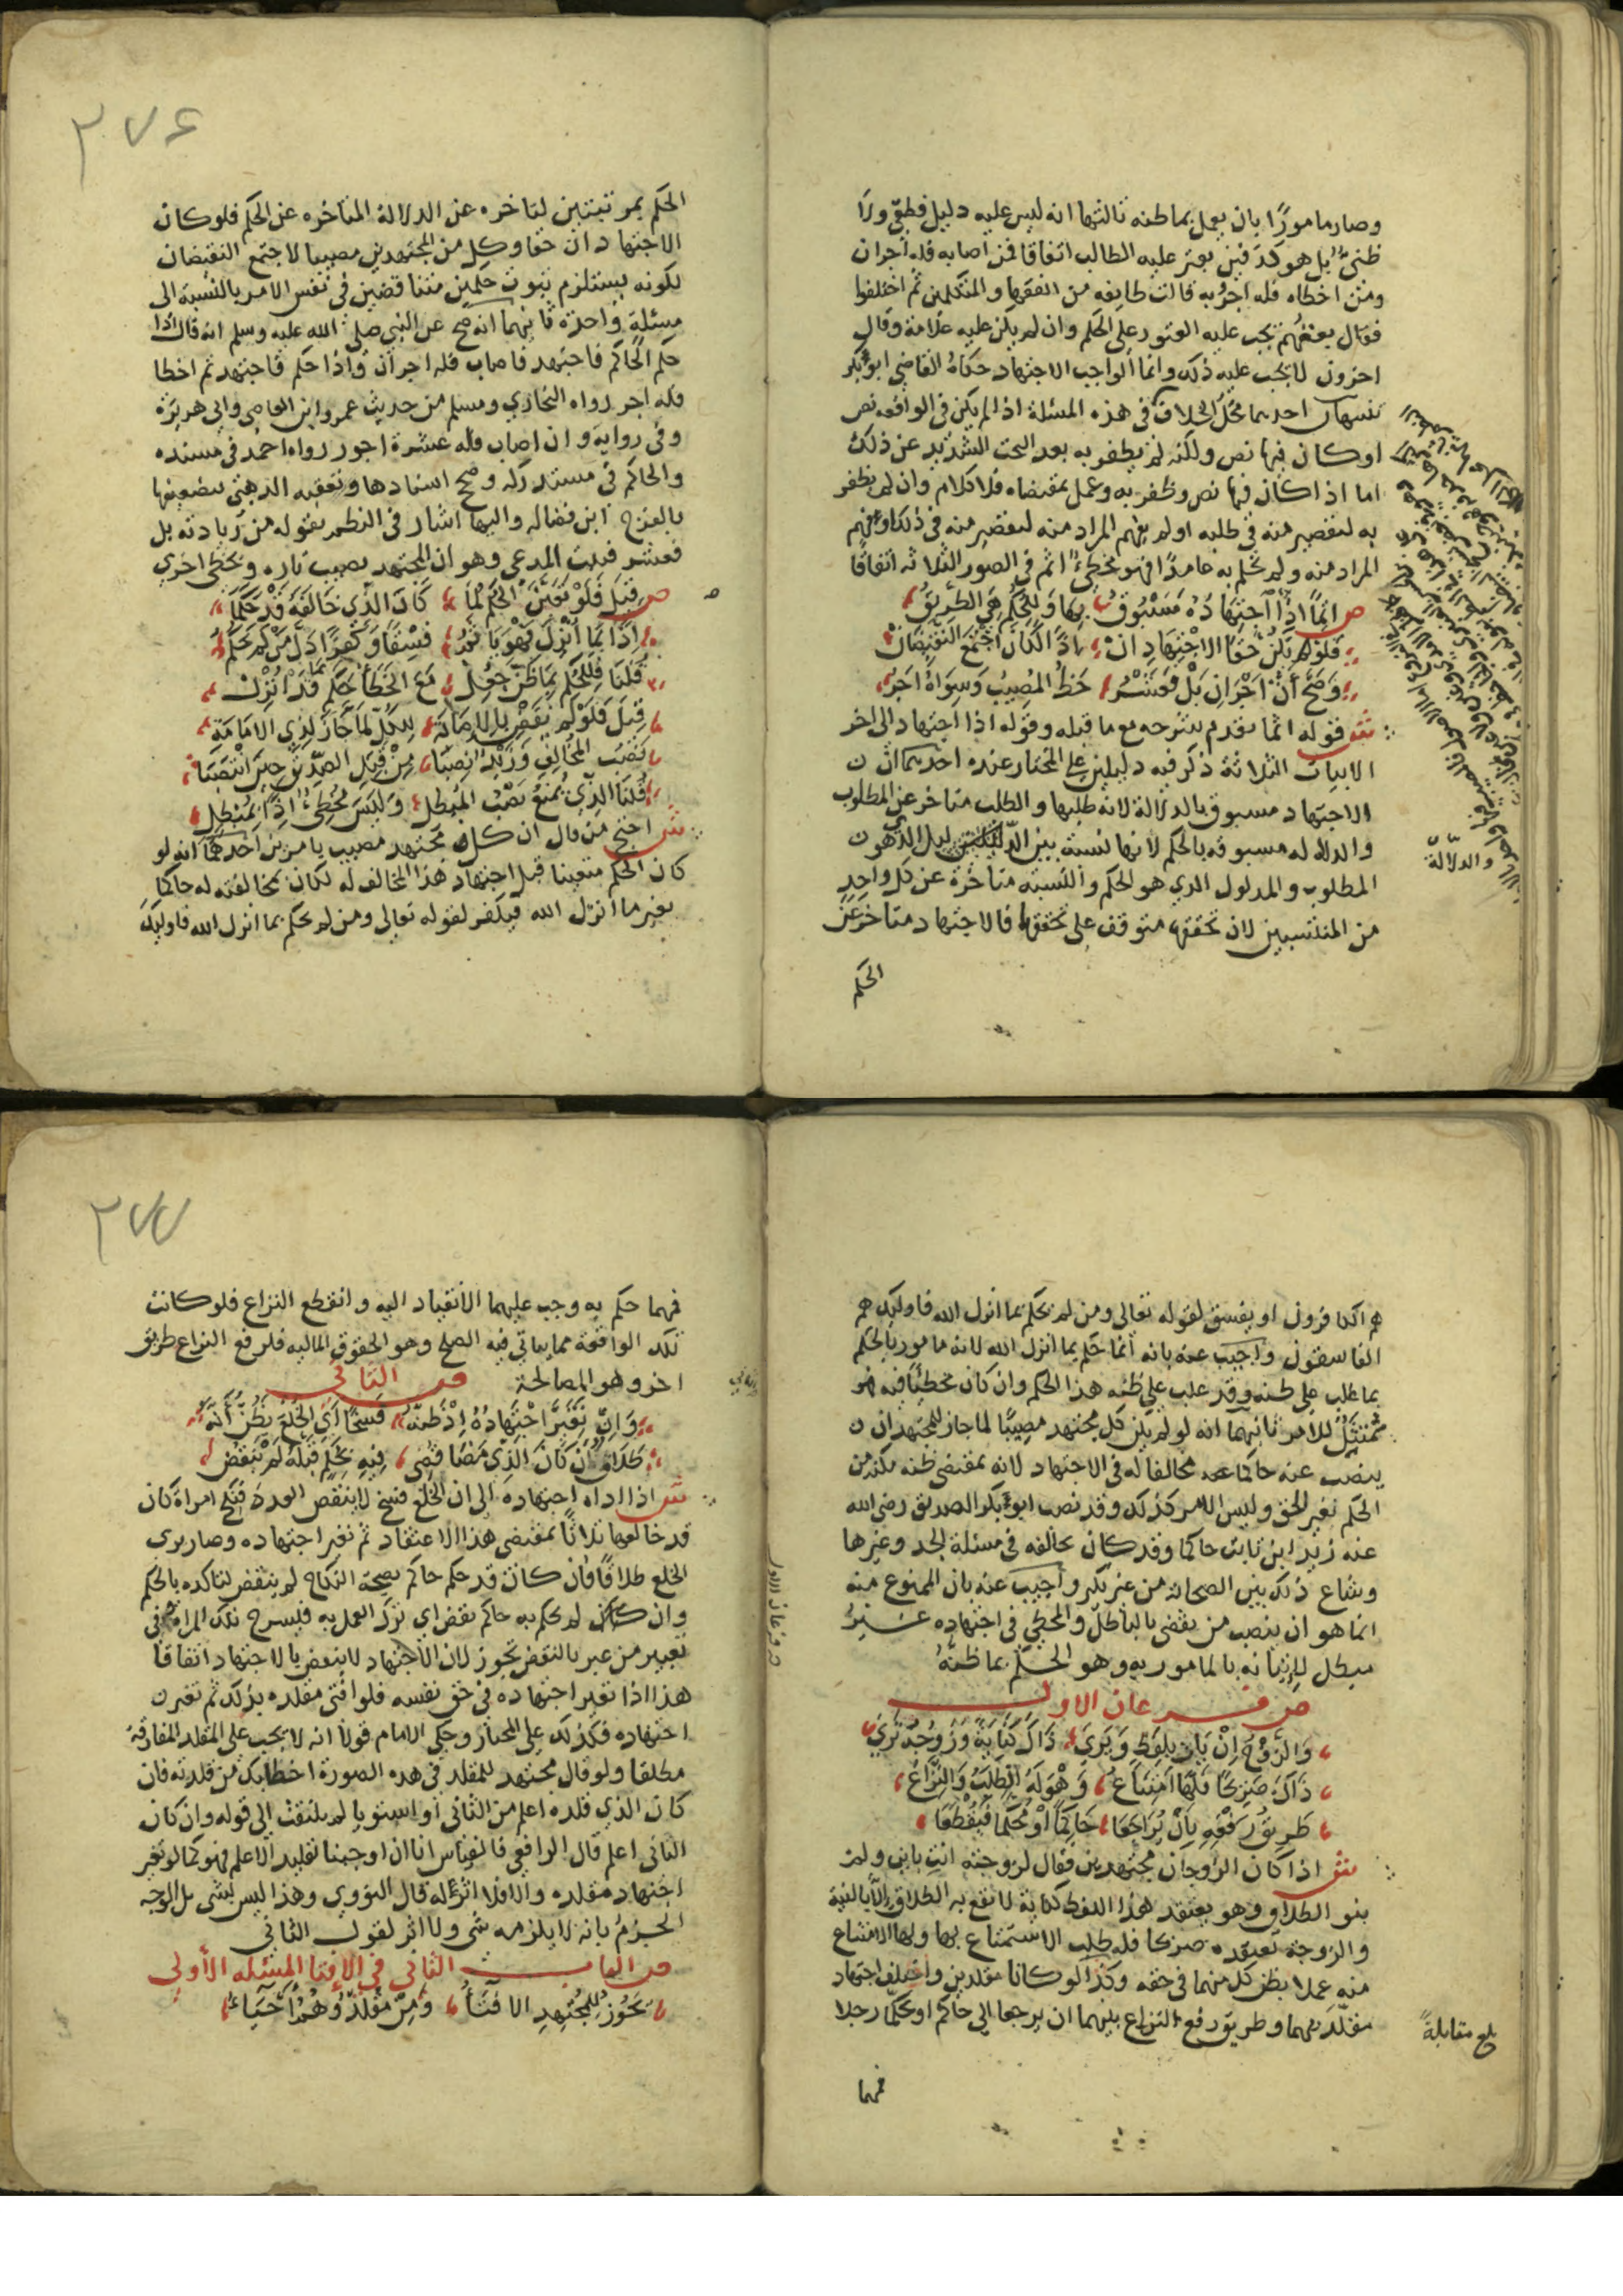 وصار مامورًا بان يعمل بما ظنه ثالثها انه ليس عليه دليل قطعي ولا
ظني بل هو كدفين يعثر عليه الطالب اتفاقا فمن اصابه فله اجران
ومن اخطاه فله اجر وبه قالت طايفه من الفقها والمتكلمين ثم اختلفوا
فقال بعضهم يجب عليه العثور على الحكم وان لم يكن عليه علامة وقال
اخرون لا يجب عليه ذلك وانما الواجب الاجتهاد حكاه القاضي ابو بكر
تنبيهان احدهما محل الخلاف في هذه المسئلة اذا لم يكن في الواقعه نص
او كان فيها نص ولكنه لم يظفر به بعد البحث الشديد عن ذلك
اما اذا كان فيها نص وظفر به وعمل بمقتضاه فلا كلام وان لم يظفر
به لتقصير منه في طلبه او لم يفهم المراد منه لتقصير منه في ذلك او فهم
المراد منه ولم يحكم به عامدًا فهو مخطئ اثم في الصور الثلاثه اتفاقًا
ص اثمًا اذا اجتهاده مسبوق بها وللحكم هي الطريق
فلو يكن حقا الاجتهادان اذًا لكان اجتمع النقيضان
وصح أن اجران بل فعشر حظ المصيب وسواه اجر
ش فقوله اثما تقدم شرحه مع ما قبله وقوله اذا اجتهاد الى اخر
الابيات الثلاثة ذكر فيه دليلين على المختار عنده احدهما ان
الاجتهاد مسبوق بالدلالة لانه طلبها والطلب متاخر عن المطلوب
والدلاله مسبوقه بالحكم لانها نسبة بين الدليل الذي هو
المطلوب والمدلول الذي هو الحكم والنسبه متاخرة عن كل واحد
من المنتسبين لان تحققها متوقف على تحققهما فالاجتهاد متاخر عن
الحكم
والدلالة
٢٧٦
الحكم بمرتبتين لتاخره عن الدلالة المتاخره عن الحكم فلو كان
الاجتهادان حقا وكل من المجتهدين مصيبا لاجتمع النقيضان
لكونه يستلزم ثبوت حكمين متناقضين في نفس الامر بالنسبة الى
مسئلة واحدة ثانيهما انه صح عن النبي صلى الله عليه وسلم انه قال اذا
حكم الحاكم فاجتهد فاصاب فله اجران واذا حكم فاجتهد ثم اخطا
فله اجر رواه البخاري ومسلم من حديث عمرو ابن العاصي وابي هريرة
وفي رواية وان اصاب فله عشرة اجور رواه احمد في مسنده
والحاكم في مستدركه وصحح اسنادها وتعقبه الذهبي بتضعيفها
بالفرج ابن فضاله واليها اشار في النظم بقوله من زيادته بل
فعشر فثبت المدعى وهو ان المجتهد يصيب تاره ويخطي اخري
ص قيل فلو تعين الحكم لما كان الذي خالفه قد حكما
اذًا بما أنزل فهو يا ثمر فسقًا وكفرًا دل من لم يحكم
قلنا فللحكم بما ظن جعل مع الخطأ حكم بما قد انزل
قيل فلو لم نقض بالاصابة للكل لما جاز لذي الامامة
نصب المخالف وزيد نصبا من قبل الصديق حين انتصبا
قلنا الذي يمنع نصب المبطل وليس مخطئ اذًا بمبطل
ش احتج من قال ان كل مجتهد مصيب بامرين احدهما انه لو
كان الحكم متعينا قبل اجتهاد هذا المخالف له لكان بمخالفته له حاكما
بغير ما انزل الله فيكفر لقوله تعالى ومن لم يحكم بما انزل الله فاوليك
هم الكافرون او يفسق لقوله تعالى ومن لم يحكم بما انزل الله فاوليك هم
الفاسقون واجيب عنه بانه انما حكم بما انزل الله لانه مامور بالحكم
بما غلب على ظنه وقد غلب على ظنه هذا الحكم وان كان مخطئًا فيه فهو
ممتثل للامر ثانيهما انه لو لم يكن كل مجتهد مصيبًا لما جاز للمجتهد ان
ينصب عنه حاكما مخالفا له في الاجتهاد لانه بمقتضى ظنه مكنه من
الحكم بغير الحق وليس الامر كذلك وقد نصب ابو بكر الصديق رضي الله
عنه زيد ابن ثابت حاكما وقد كان يخالفه في مسئلة الجد وغيرها
وشاع ذلك بين الصحابة من غير نكير واجيب عنه بان الممنوع منه
انما هو ان ينصب من يقضي بالباطل والمخطي في اجتهاده غير
مبطل لاتيانه بالمامور به وهو الحكم بما ظنه
ص فرعان الاول
والزوج إن بان بلفظ ويري ذاك كناية وزوجه تري
ذاك صريحًا فلها امتناع وهو له الطلب والنزاع
طريق رفعه بأن يراجعا حاكمًا او محكما فيقطعا
ش اذا كان الزوجان مجتهدين فقال لزوجته انت باين ولم
ينو الطلاق وهو يعتقد هذا اللفظ كناية لا يقع به الطلاق إلا بالنية
والزوجة تعتقده صريحا فله طلب الاستمتاع بها ولها الامتناع
منه عملا بظن كل منهما في حقه وكذا لو كانا مقلدين واختلف اجتهاد
مقلديهما وطريق رفع النزاع بينهما ان يرجعا الى حاكم او يحكما رجلا
بلغ مقابلة
فمهما
٢٧٧
فمهما حكم به وجب عليهما الانقياد اليه وانقطع النزاع فلو كانت
تلك الواقعة مما ياتي فيه الصلح وهو الحقوق الماليه فلرفع النزاع طريق
اخر وهو المصالحة ص الثاني
وإن تغير اجتهاده إذ ظنه فسخًا أي الخلع فظن أنه
طلاق أن كان الذي مضا قضى فيه بحكم قبله لم ينقض
ش اذا اداه اجتهاده الى ان الخلع فسخ لا ينقص العدد فنكح امراة كان
قد خالعها ثلاثًا بمقتضى هذا الاعتقاد ثم تغير اجتهاده وصار يرى
الخلع طلاقًا فان كان قد حكم حاكم بصحة النكاح لم ينقض لتاكده بالحكم
وان كان لم يحكم به حاكم نقض اي ترك العمل به فيسرح تلك المراة وفي
تعبير من عبر بالنقض تجوز لان الاجتهاد لا ينقض بالاجتهاد اتفاقًا
هذا اذا تغير اجتهاده في حق نفسه فلو افتى مقلده بذلك ثم تغير
اجتهاده فكذلك على المختار وحكي الامام قولا انه لا يجب على المقلد المفارقة
مطلقا ولو قال مجتهد للمقلد في هذه الصورة اخطا بك من قلدته فان
كان الذي قلده اعلم من الثاني او استويا لم يلتفت الى قوله وان كان
الثاني اعلم قال الرافعي فالقياس انا ان اوجبنا تقليد الاعلم فهو كما لو تغير
اجتهاد مقلده والا فلا اثر له قال النووي وهذا ليس بشي بل الوجه
الجزم بانه لا يلزمه شي ولا اثر لقول الثاني
ص الباب الثاني في الافتا المسئله الأولى
يجوز للمجتهد الافتاء